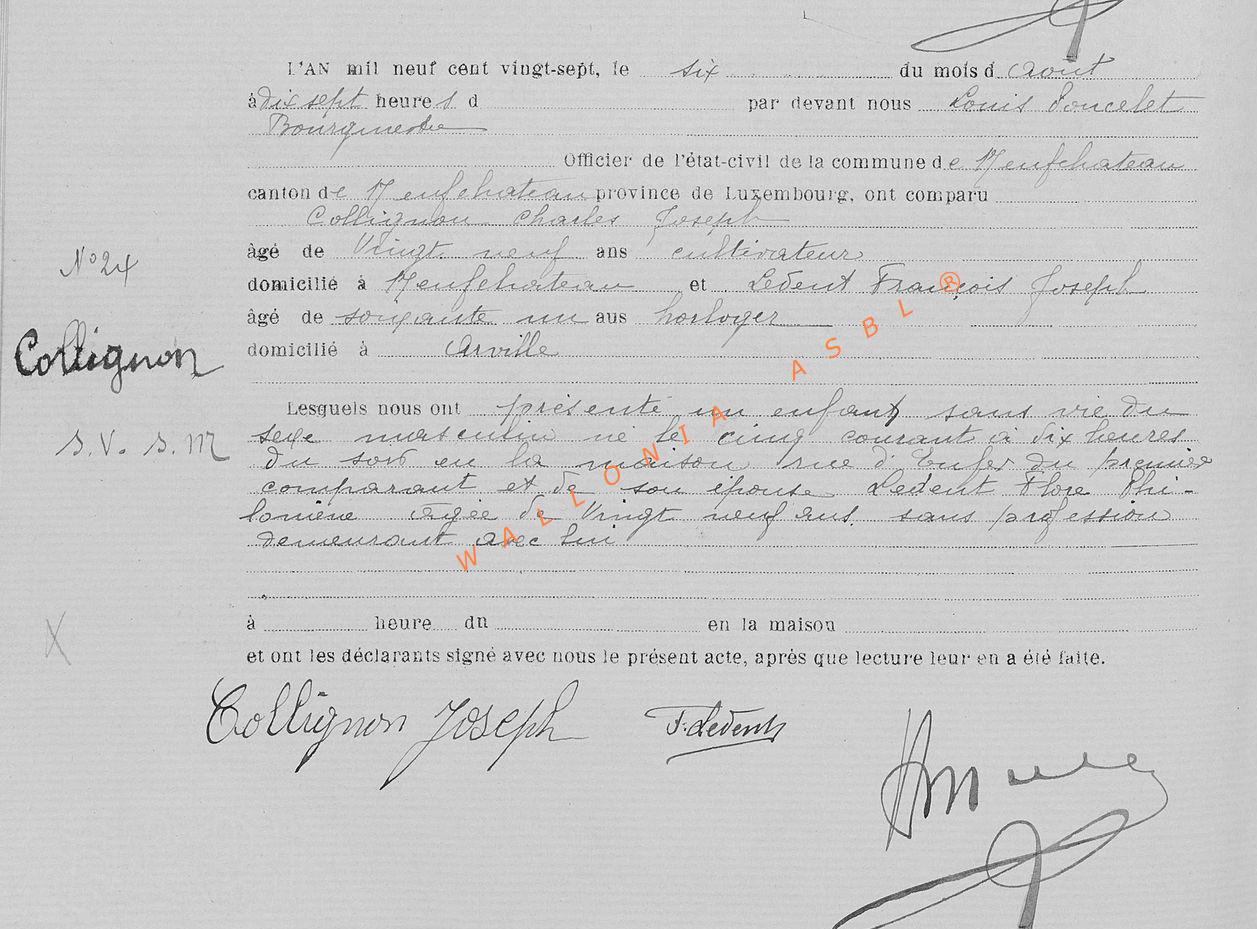 L'AN mil neuf cent vingt-sept, le six du mois d'Août
à dix sept heures d par devant nous Louis Poncelet
Bourgmestre
Officier de l'état-civil de la commune de Neufchateau
canton de Neufchateau province de Luxembourg, ont comparu
Collignon Charles Joseph
âgé de Vingt neuf ans cultivateur
N° 24
domicilié à Neufchateau et Ledent François Joseph
âgé de soixante un ans horloger
Collignon
domicilié à Arville
Lesquels nous ont présenté un enfant sans vie du
S.V. S.M
sexe masculin né le cinq courant à dix heures
du soir en la maison rue d'Enfer du premier
comparant et de son épouse Ledent Flore Phi-
lomène agée de Vingt neuf ans sans profession
demeurant avec lui
WALLONIA ASBL ®
à heure du en la maison
et ont les déclarants signé avec nous le présent acte, après que lecture leur en a été faite.
Collignon Joseph F. Ledent